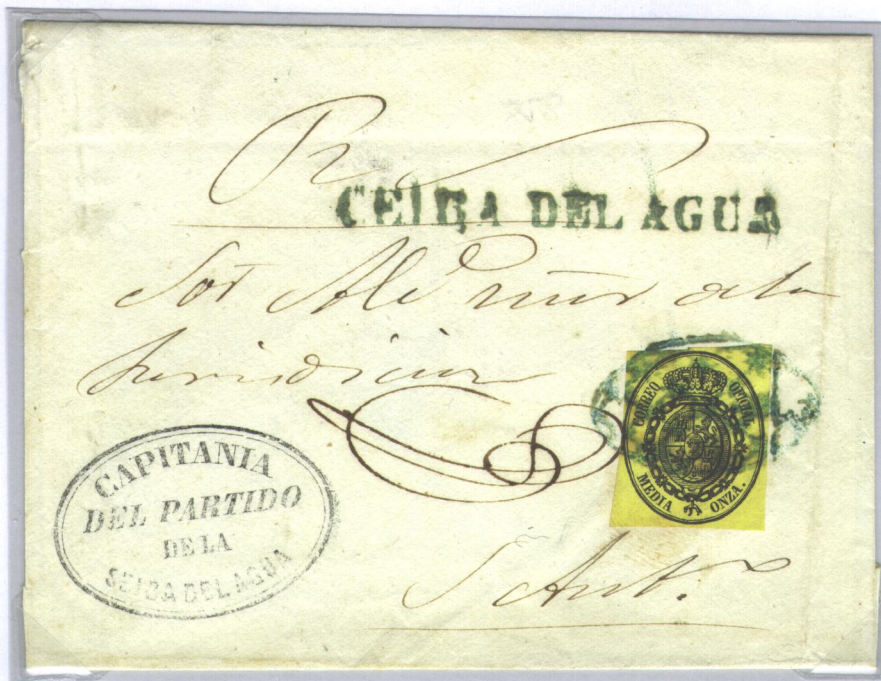 CEIBA DEL AGUA
Sor Alc mor de la
Jurisdicion
CORREO OFICIAL
MEDIA ONZA.
CAPITANIA
DEL PARTIDO
DE LA
SEIBA DEL AGUA
S Ant.